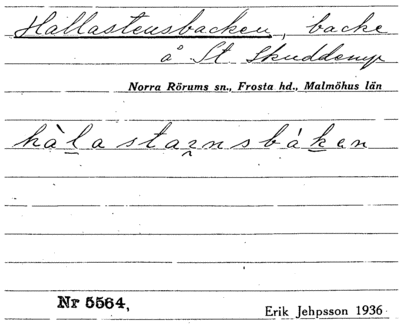 Hallastensbacken, backe
å St Skuddarp
Norra Rörums sn., Frosta hd., Malmöhus län
hàlastaɀnsbákan
Nr 5564,
Erik Jehpsson 1936